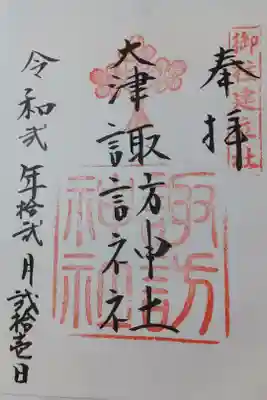 奉拝
大津諏訪神社
諏訪
神社
令和弐年拾弐月弐拾壱日